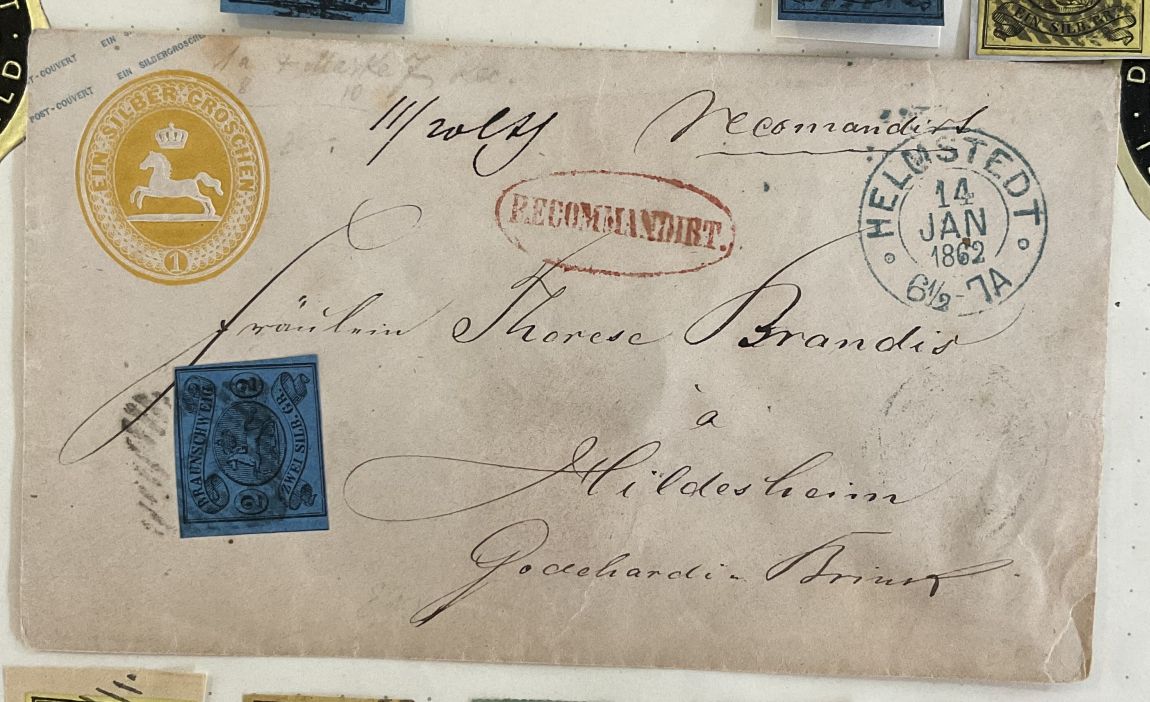 EIN SILBERGROSCHEN
POST-COUVERT
POST-COUVERT
EIN·SILBER·GROSCHEN
1
Recomandirt
RECOMMANDIRT.
HELMSTEDT
14
JAN
1862
6½-7A
Fräulein Therese Brandis
à
Hildesheim
Godehardi-Brinck
BRAUNSCHWEIG
ZWEI SILB. GR.
2
2
2
EIN SILB. GR.